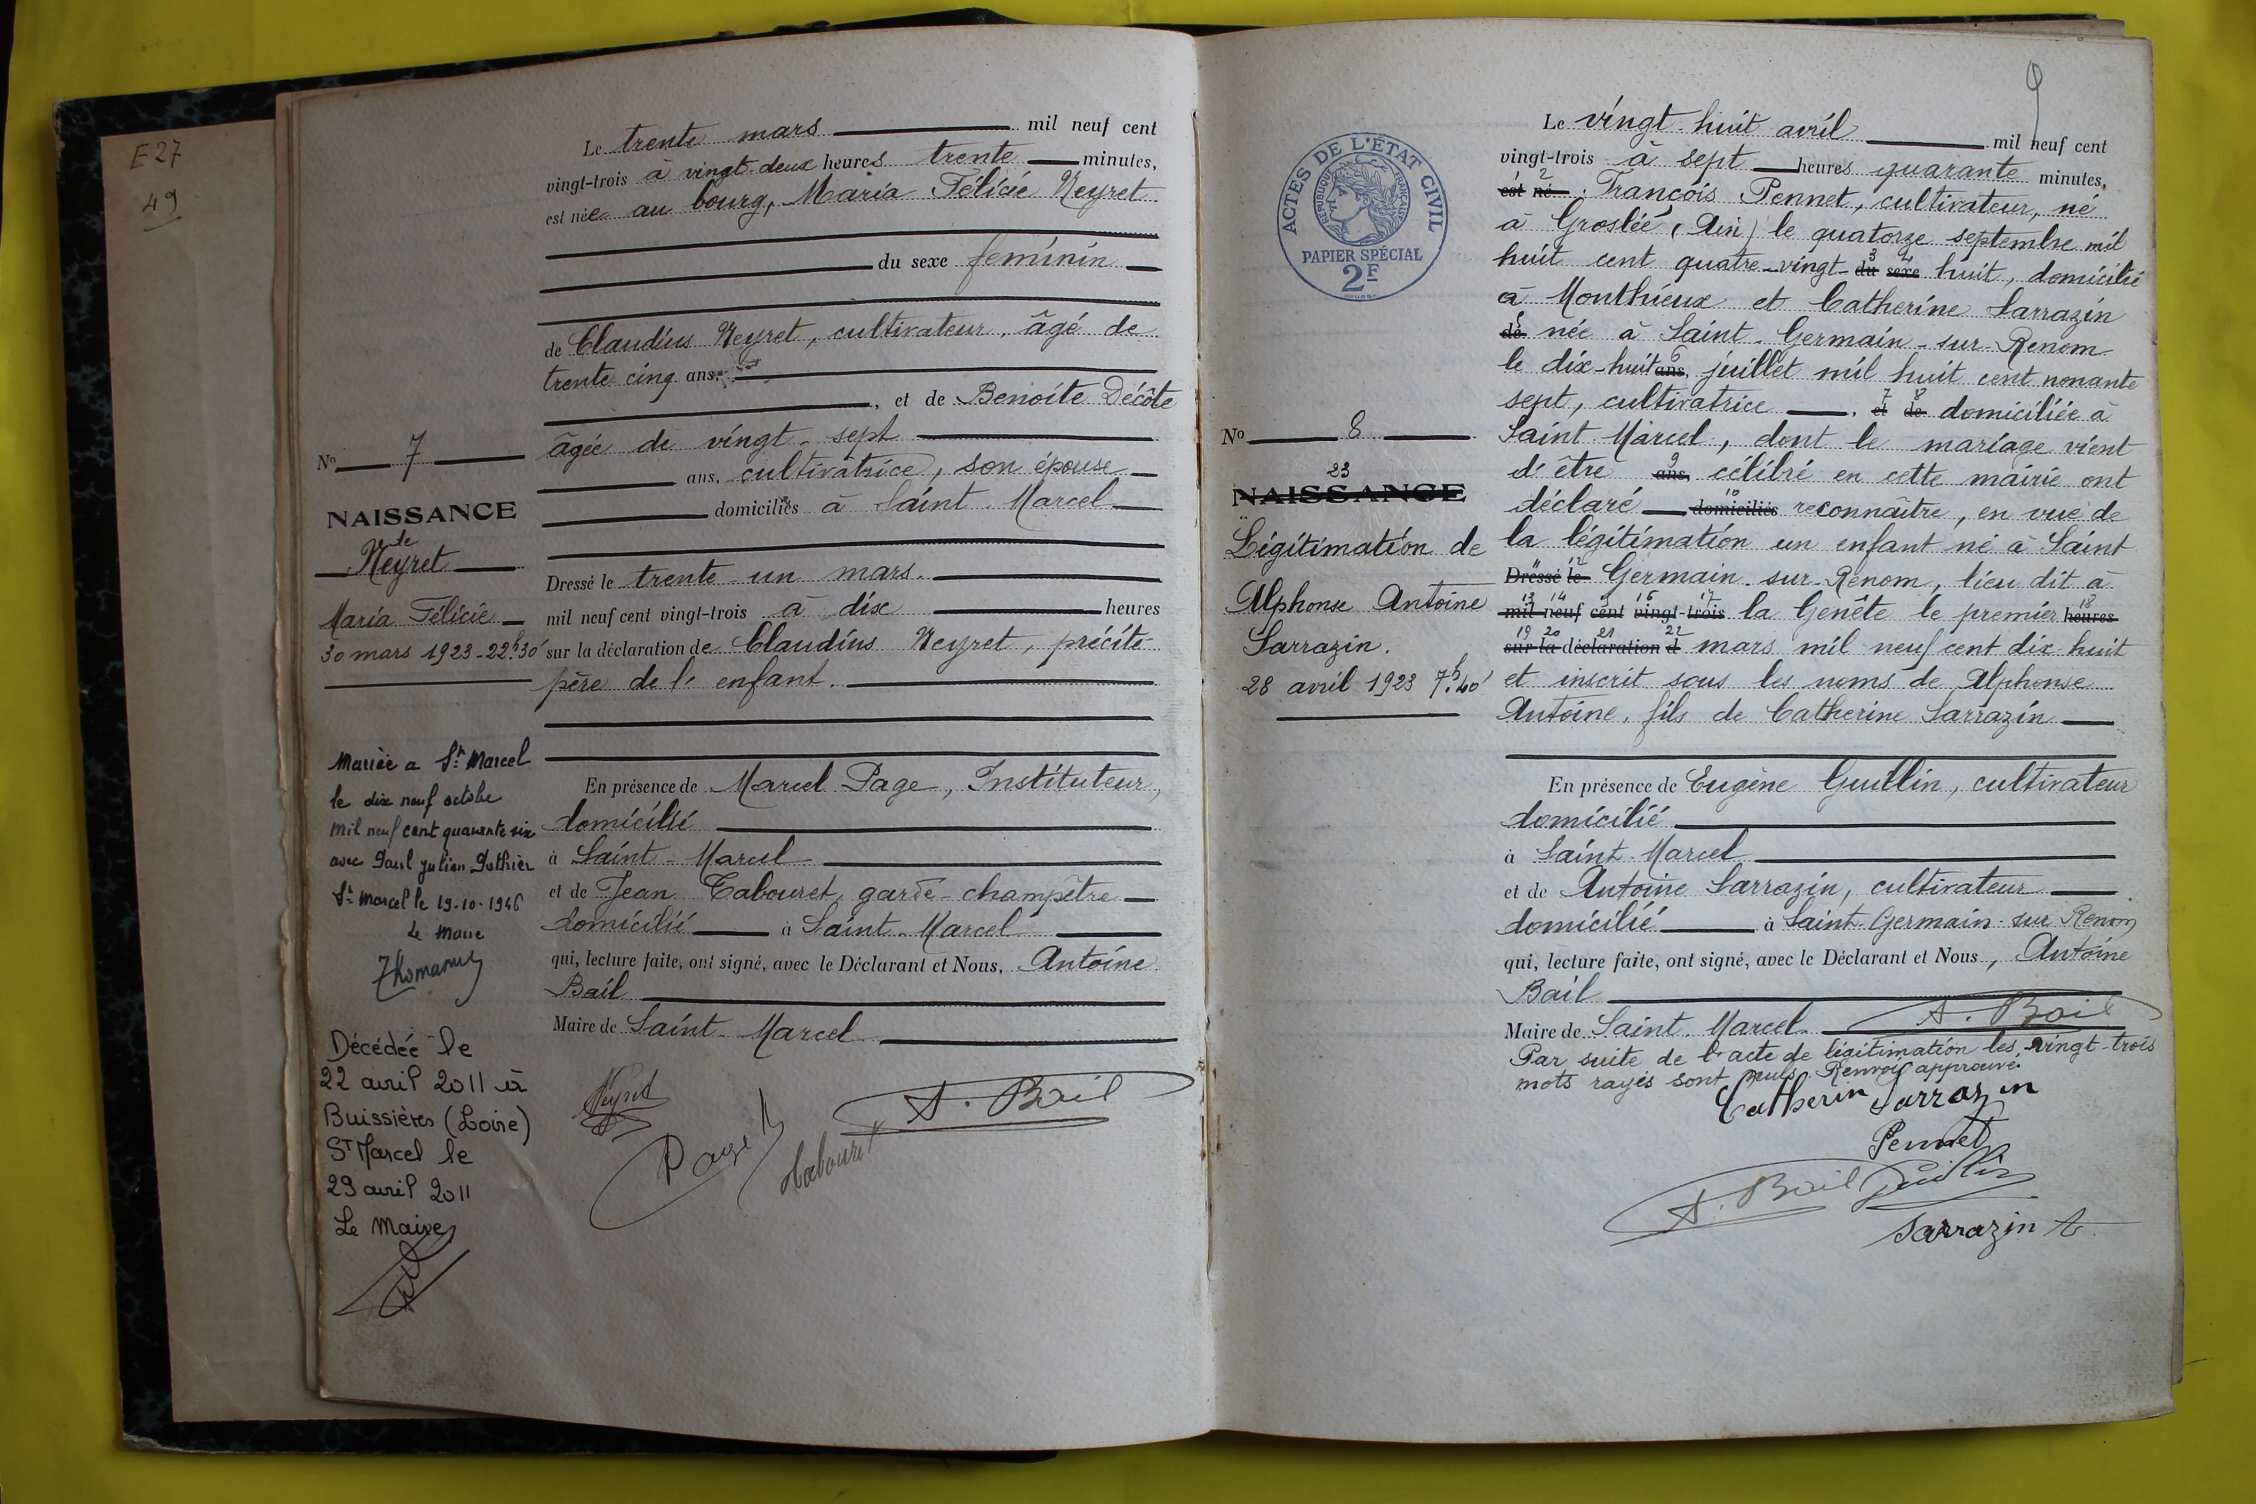 E 27
49
Le trente mars mil neuf cent
vingt-trois à vingt-deux heures trente minutes,
est née au bourg, Maria Félicie Neyret
du sexe féminin
de Claudius Neyret, cultivateur, âgé de
trente cinq ans,
, et de Benoite Décôte
âgée de vingt-sept
ans, cultivatrice, son épouse
domiciliés à Saint-Marcel
Dressé le trente-un mars
mil neuf cent vingt-trois à dix heures
sur la déclaration de Claudius Neyret, précité
père de l'enfant.
En présence de Marcel Page, Instituteur,
domicilié
à Saint-Marcel
et de Jean Tabouret, garde-champêtre
domicilié à Saint-Marcel
qui, lecture faite, ont signé, avec le Déclarant et Nous, Antoine
Bail
Maire de Saint-Marcel
Neyret
Page
Tabouret
A. Bail
No 7
NAISSANCE
de
Neyret
Maria Félicie
30 mars 1923 - 22h30'
Mariée a St Marcel
le dix neuf octobre
mil neuf cent quarante six
avec Paul Julien Pothier
St Marcel le 19-10-1946
Le Maire
Décédée le
22 avril 2011 à
Bussières (Loire)
St Marcel le
29 avril 2011
Le Maire
9
ACTES DE L'ÉTAT CIVIL
RÉPUBLIQUE FRANÇAISE
PAPIER SPÉCIAL
2F
No 8
23
NAISSANCE
Légitimation de
Alphonse Antoine
Sarrazin.
28 avril 1923 7h.40'
Le vingt huit avril mil neuf cent
vingt-trois à sept heures quarante minutes,
1 2
est né : François Pennet, cultivateur, né
à Groslée, (Ain) le quatorze septembre mil
3 4
huit cent quatre-vingt- du sexe huit, domicilié
à Monthieux et Catherine Sarrazin
5
de née à Saint-Germain-sur-Renom
6
le dix-huit ans, juillet mil huit cent nonante
7 8
sept, cultivatrice . et de domiciliée à
Saint Marcel, dont le mariage vient
9
d'être ans, célébré en cette mairie ont
10
déclaré domiciliés reconnaître, en vue de
la légitimation un enfant né à Saint
11 12
Dressé le Germain-sur-Renom, lieu dit à
13 14 15 16 17 18
mil neuf cent vingt-trois la Genête le premier heures
19 20 21 22
sur la déclaration d mars mil neuf cent dix huit
et inscrit sous les noms de Alphonse
Antoine, fils de Catherine Sarrazin
En présence de Eugène Guillin, cultivateur
domicilié
à Saint-Marcel
et de Antoine Sarrazin, cultivateur
domicilié à Saint-Germain-sur Renom
qui, lecture faite, ont signé, avec le Déclarant et Nous, Antoine
Bail
Maire de Saint-Marcel. A. Bail
Par suite de l'acte de légitimation les vingt-trois
mots rayés sont nuls. Renvoi approuvé.
Catherin Sarrazin
Pennet
A. Bail Guillin
Sarrazin A